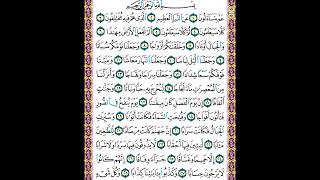 بِسْمِ اللَّهِ الرَّحْمَٰنِ الرَّحِيمِ
عَمَّ يَتَسَاءَلُونَ ١ عَنِ النَّبَإِ الْعَظِيمِ ٢ الَّذِي هُمْ فِيهِ مُخْتَلِفُونَ ٣
كَلَّا سَيَعْلَمُونَ ٤ ثُمَّ كَلَّا سَيَعْلَمُونَ ٥ أَلَمْ نَجْعَلِ الْأَرْضَ مِهَٰدًا ٦
وَالْجِبَالَ أَوْتَادًا ٧ وَخَلَقْنَٰكُمْ أَزْوَٰجًا ٨ وَجَعَلْنَا نَوْمَكُمْ سُبَاتًا ٩
وَجَعَلْنَا الَّيْلَ لِبَاسًا ١٠ وَجَعَلْنَا النَّهَارَ مَعَاشًا ١١ وَبَنَيْنَا
فَوْقَكُمْ سَبْعًا شِدَادًا ١٢ وَجَعَلْنَا سِرَاجًا وَهَّاجًا ١٣ وَأَنزَلْنَا
مِنَ الْمُعْصِرَٰتِ مَاءً ثَجَّاجًا ١٤ لِّنُخْرِجَ بِهِ حَبًّا وَنَبَاتًا ١٥ وَجَنَّٰتٍ
أَلْفَافًا ١٦ إِنَّ يَوْمَ الْفَصْلِ كَانَ مِيقَٰتًا ١٧ يَوْمَ يُنفَخُ فِي الصُّورِ
فَتَأْتُونَ أَفْوَاجًا ١٨ وَفُتِحَتِ السَّمَاءُ فَكَانَتْ أَبْوَٰبًا ١٩ وَسُيِّرَتِ
الْجِبَالُ فَكَانَتْ سَرَابًا ٢٠ إِنَّ جَهَنَّمَ كَانَتْ مِرْصَادًا ٢١ لِّلطَّٰغِينَ
مَـَٔابًا ٢٢ لَّٰبِثِينَ فِيهَا أَحْقَابًا ٢٣ لَّا يَذُوقُونَ فِيهَا بَرْدًا وَلَا شَرَابًا ٢٤
إِلَّا حَمِيمًا وَغَسَّاقًا ٢٥ جَزَاءً وِفَاقًا ٢٦ إِنَّهُمْ كَانُوا
لَا يَرْجُونَ حِسَابًا ٢٧ وَكَذَّبُوا بِـَٔايَٰتِنَا كِذَّابًا ٢٨ وَكُلَّ شَيْءٍ